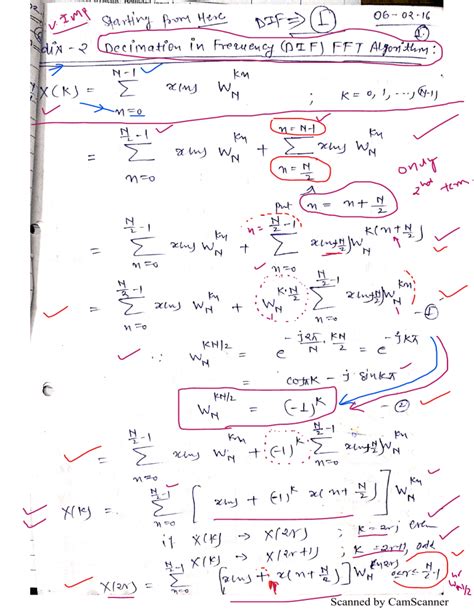 v. Imp Starting from Here DIF ⇒ 1 06-02-16
dix-2 Decimation in Frequency (DIF) FFT Algorithm:
X(K) = Σ_{n=0}^{N-1} x(n) W_N^{Kn} ; K = 0, 1, ..., (N-1)
= Σ_{n=0}^{N/2-1} x(n) W_N^{Kn} + Σ_{n=N/2}^{n=N-1} x(n) W_N^{Kn}
only 2nd term.
put n = n + N/2
= Σ_{n=0}^{N/2-1} x(n) W_N^{Kn} + Σ_{n=0}^{n=N/2-1} x(n+N/2) W_N^{K(n+N/2)}
= Σ_{n=0}^{N/2-1} x(n) W_N^{Kn} + W_N^{K·N/2} Σ_{n=0}^{N/2-1} x(n+N/2) W_N^{Kn} - 1
∵ W_N^{KN/2} = e^{-j2π/N · KN/2} = e^{-jKπ}
= cosπK - j sinKπ
W_N^{KN/2} = (-1)^K - 2
= Σ_{n=0}^{N/2-1} x(n) W_N^{Kn} + (-1)^K Σ_{n=0}^{N/2-1} x(n+N/2) W_N^{Kn}
X(K) = Σ_{n=0}^{N/2-1} [x(n) + (-1)^K x(n+N/2)] W_N^{Kn}
if X(K) → X(2r) ; K = 2r; even
X(K) → X(2r+1) ; K = 2r+1, odd
X(2r) = Σ_{n=0}^{N/2-1} [x(n) + x(n+N/2)] W_N^{(n2r)} 0≤r≤N/2-1
Scanned by CamScanner